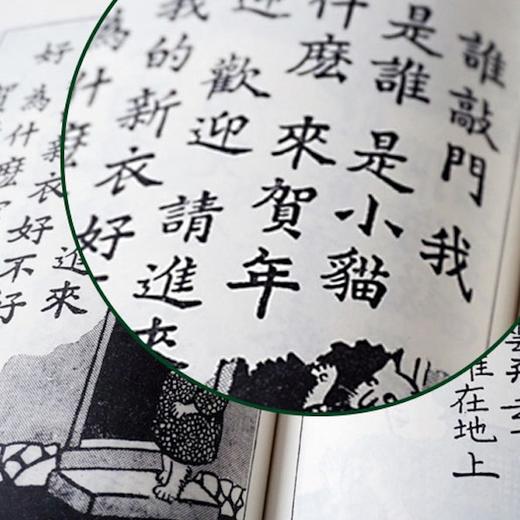 誰敲門 我
是誰 是小貓
什麼 來賀年
迎 歡迎 請進來
我的新衣好
為什麼
進來
新衣好
好 為什麼
不好
在地上